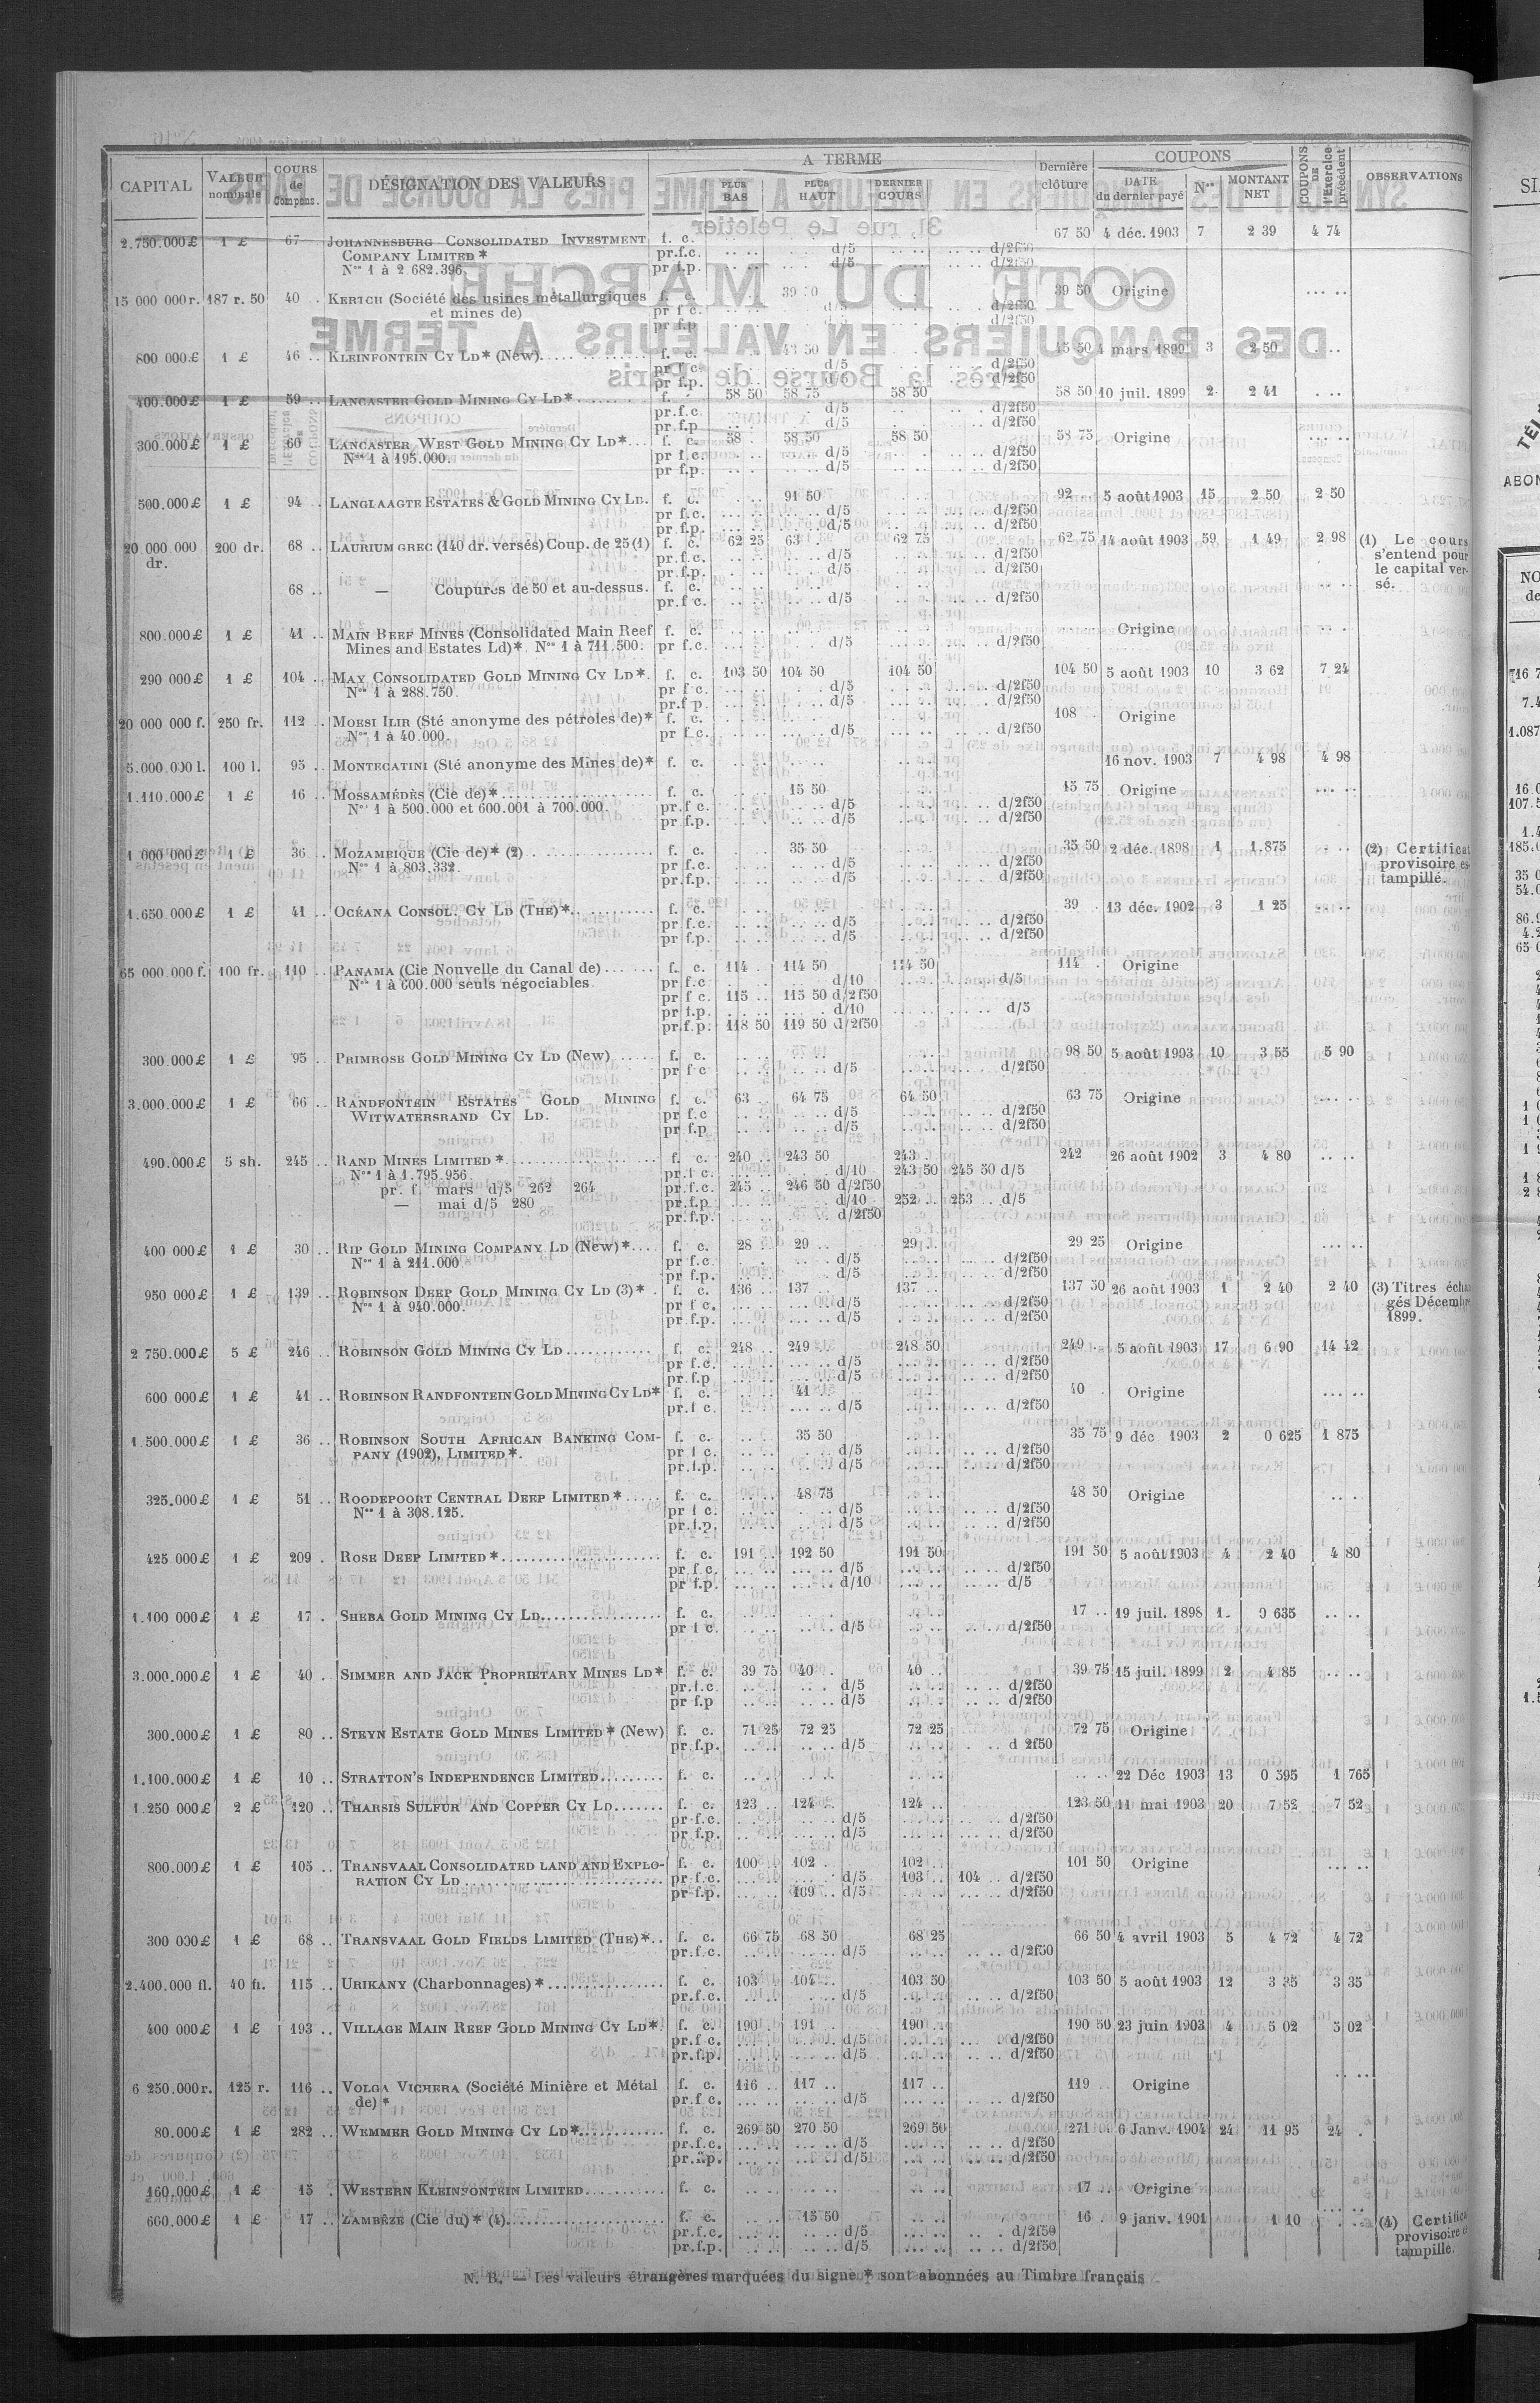 CAPITAL | VALEUR nominale | COURS de Compens. | DÉSIGNATION DES VALEURS | A TERME | PLUS BAS | PLUS HAUT | DERNIER COURS | Dernière clôture | COUPONS | DATE du dernier payé | Nos | MONTANT NET | COUPONS DE l'Exercice précédent | OBSERVATIONS
2.750.000 £ 1 £ 67 JOHANNESBURG CONSOLIDATED INVESTMENT f. c. 67 50 4 déc. 1903 7 2 39 4 74
COMPANY LIMITED * pr.f.c. d/5 d/2f50
Nos 1 à 2 682.396. pr f.p. d/5 d/2f50
15 000 000 r. 187 r. 50 40 KERTCH (Société des usines métallurgiques f. c. 39 50 Origine
et mines de) pr f c. d/5 d/2f50
pr f.p d/2f50
800 000 £ 1 £ 46 KLEINFONTEIN CY LD* (New) f. c. 45 50 4 mars 1899 3 2 50
pr f c. d/5 d/2f50
pr f.p. d/5 d/2f50
400.000 £ 1 £ 59 LANCASTER GOLD MINING CY LD* f. 58 50 58 75 58 50 58 50 10 juil. 1899 2 2 41
pr.f.c. d/5 d/2f50
pr.f.p d/5 d/2f50
300.000 £ 1 £ 60 LANCASTER WEST GOLD MINING CY LD* f. c. 58 58 50 58 50 58 75 Origine
Nos 1 à 195.000. pr f.c. d/5 d/2f50
pr f.p. d/5 d/2f50
500.000 £ 1 £ 94 LANGLAAGTE ESTATES & GOLD MINING CY LD. f. c. 91 50 92 5 août 1903 15 2 50 2 50
pr f.c. d/5 d/2f50
pr.f.p. d/5 d/2f50
20.000.000 dr. 200 dr. 68 LAURIUM GREC (140 dr. versés) Coup. de 25 (1) f. c. 62 25 63 62 75 62 75 14 août 1903 59 1 49 2 98 (1) Le cours
pr.f.c. d/5 d/2f50 s'entend pour
pr.f.p. d/5 d/2f50 le capital ver-
68 — Coupures de 50 et au-dessus. f. c. sé.
pr.f c. d/5 d/2f50
800.000 £ 1 £ 41 MAIN REEF MINES (Consolidated Main Reef f. c. Origine
Mines and Estates Ld)*. Nos 1 à 711.500. pr f.c. d/5 d/2f50
290 000 £ 1 £ 104 MAY CONSOLIDATED GOLD MINING CY LD*. f. c. 103 50 104 50 104 50 104 50 5 août 1903 10 3 62 7 24
Nos 1 à 288.750. pr f c. d/5 d/2f50
pr.f p. d/5 d/2f50
20 000 000 f. 250 fr. 112 MORSI ILIR (Sté anonyme des pétroles de)* f. c. 108 Origine
Nos 1 à 40.000. pr f c. d/5 d/2f50
5.000.000 l. 100 l. 95 MONTECATINI (Sté anonyme des Mines de)* f. c. 16 nov. 1903 7 4 98 4 98
1.110.000 £ 1 £ 16 MOSSAMÉDÈS (Cie de)* f. c. 15 50 15 75 Origine
Nos 1 à 500.000 et 600.001 à 700.000. pr.f c. d/5 d/2f50
pr f.p. d/5 d/2f50
1 000 000 £ 1 £ 36 MOZAMBIQUE (Cie de)* (2) f. c. 35 50 35 50 2 déc. 1898 1 1.875 (2) Certificat
Nos 1 à 803.332. pr f.c. d/5 d/2f50 provisoire es-
pr.f.p. d/5 d/2f50 tampillé.
1.650 000 £ 1 £ 41 OCÉANA CONSOL. CY LD (THE)* f. c. 39 13 déc. 1902 3 1 25
pr f.c. d/5 d/2f50
pr f.p. d/5 d/2f50
65 000.000 f. 100 fr. 110 PANAMA (Cie Nouvelle du Canal de) f. c. 114 114 50 114 50 114 Origine
Nos 1 à 600.000 seuls négociables pr f.c d/10 d/5
pr f c. 115 115 50 d/2f50
pr f.p. d/10 d/5
pr.f.p. 118 50 119 50 d/2f50
300 000 £ 1 £ 95 PRIMROSE GOLD MINING CY LD (New) f. c. 98 50 5 août 1903 10 3 55 5 90
pr f c d/5 d/2f50
3.000.000 £ 1 £ 66 RANDFONTEIN ESTATES GOLD MINING f. c. 63 64 75 64 50 63 75 Origine
WITWATERSRAND CY LD. pr f.c d/5 d/2f50
pr f.p d/5 d/2f50
490.000 £ 5 sh. 245 RAND MINES LIMITED * f. c. 240 243 50 243 242 26 août 1902 3 4 80
Nos 1 à 1.795.956 pr.f c. d/10 243 50 245 50 d/5
pr. f. mars d/5 262 264 pr.f.c. 245 246 50 d/2f50
— mai d/5 280 pr.f.p d/10 252 253 d/5
pr.f.p. d/2f50
400 000 £ 1 £ 30 RIP GOLD MINING COMPANY LD (New)* f. c. 28 29 29 29 25 Origine
Nos 1 à 211.000 pr f.c. d/5 d/2f50
pr f.p. d/5 d/2f50
950 000 £ 1 £ 139 ROBINSON DEEP GOLD MINING CY LD (3)* f. c. 136 137 137 137 50 26 août 1903 1 2 40 2 40 (3) Titres échan
Nos 1 à 940.000. pr f c. d/5 d/2f50 gés Décembre
pr.f.p. d/5 d/2f50 1899.
2 750.000 £ 5 £ 246 ROBINSON GOLD MINING CY LD f. c. 248 249 248 50 249 5 août 1903 17 6 90 14 42
pr f.c. d/5 d/2f50
pr.f.p d/5 d/2f50
600.000 £ 1 £ 41 ROBINSON RANDFONTEIN GOLD MINING CY LD* f. c. 41 40 Origine
pr.f c. d/5 d/2f50
1 500.000 £ 1 £ 36 ROBINSON SOUTH AFRICAN BANKING COM- f. c. 35 50 35 75 9 déc 1903 2 0 625 1 875
PANY (1902), LIMITED*. pr f c. d/5 d/2f50
pr.f.p. d/5 d/2f50
325.000 £ 1 £ 51 ROODEPOORT CENTRAL DEEP LIMITED* f. c. 48 75 48 50 Origine
Nos 1 à 308.125. pr f c. d/5 d/2f50
pr.f.p. d/5 d/2f50
425.000 £ 1 £ 209 ROSE DEEP LIMITED* f. c. 191 192 50 191 50 191 50 5 août 1903 4 2 40 4 80
pr f.c. d/5 d/2f50
pr f.p. d/10 d/5
1.100 000 £ 1 £ 17 SHEBA GOLD MINING CY LD f. c. 17 19 juil. 1898 1 0 635
pr f c. d/5 d/2f50
3.000.000 £ 1 £ 40 SIMMER AND JACK PROPRIETARY MINES LD* f. c. 39 75 40 40 39 75 15 juil. 1899 2 4 85
pr.f.c. d/5 d/2f50
pr f.p d/5 d/2f50
300.000 £ 1 £ 80 STEYN ESTATE GOLD MINES LIMITED* (New) f. c. 71 25 72 25 72 25 72 75 Origine
pr f.p. d/5 d 2f50
1.100.000 £ 1 £ 10 STRATTON'S INDEPENDENCE LIMITED f. c. 22 Déc 1903 13 0 395 1 765
1.250 000 £ 2 £ 120 THARSIS SULFUR AND COPPER CY LD f. c. 123 124 124 123 50 11 mai 1903 20 7 52 7 52
pr f.c. d/5 d/2f50
pr f.p. d/5 d/2f50
800.000 £ 1 £ 105 TRANSVAAL CONSOLIDATED LAND AND EXPLO- f. c. 100 102 102 101 50 Origine
RATION CY LD pr f.c. d/5 103 104 d/2f50
pr f.p. 109 d/5 d/2f50
300 000 £ 1 £ 68 TRANSVAAL GOLD FIELDS LIMITED (THE)* f. c. 66 75 68 50 68 25 66 50 4 avril 1903 5 4 72 4 72
pr.f.c. d/5 d/2f50
2.400.000 fl. 40 fl. 115 URIKANY (Charbonnages) * f. c. 103 104 103 50 103 50 5 août 1903 12 3 35 3 35
pr.f.c. d/5 d/2f50
400 000 £ 1 £ 193 VILLAGE MAIN REEF GOLD MINING CY LD* f. c. 190 191 190 190 50 23 juin 1903 4 5 02 5 02
pr.f c. d/5 d/2f50
pr.f.p. d/5 d/2f50
6 250.000 r. 125 r. 116 VOLGA VICHERA (Société Minière et Métal f. c. 116 117 117 119 Origine
de) * pr.f c. d/5 d/2f50
80.000 £ 1 £ 282 WEMMER GOLD MINING CY LD* f. c. 269 50 270 50 269 50 271 6 Janv. 1904 24 11 95 24
pr.f.c. d/5 d/2f50
pr.f.p. d/5 d/2f50
160.000 £ 1 £ 15 WESTERN KLEINFONTEIN LIMITED f. c. 17 Origine
600.000 £ 1 £ 17 ZAMBÈZE (Cie du)* (4) f. c. 15 50 16 9 janv. 1901 1 10 (4) Certifica
pr.f.c. d/5 d/2f50 provisoire e
pr.f.p. d/5 d/2f50 tampille.
N. B. — Les valeurs étrangères marquées du signe * sont abonnées au Timbre français